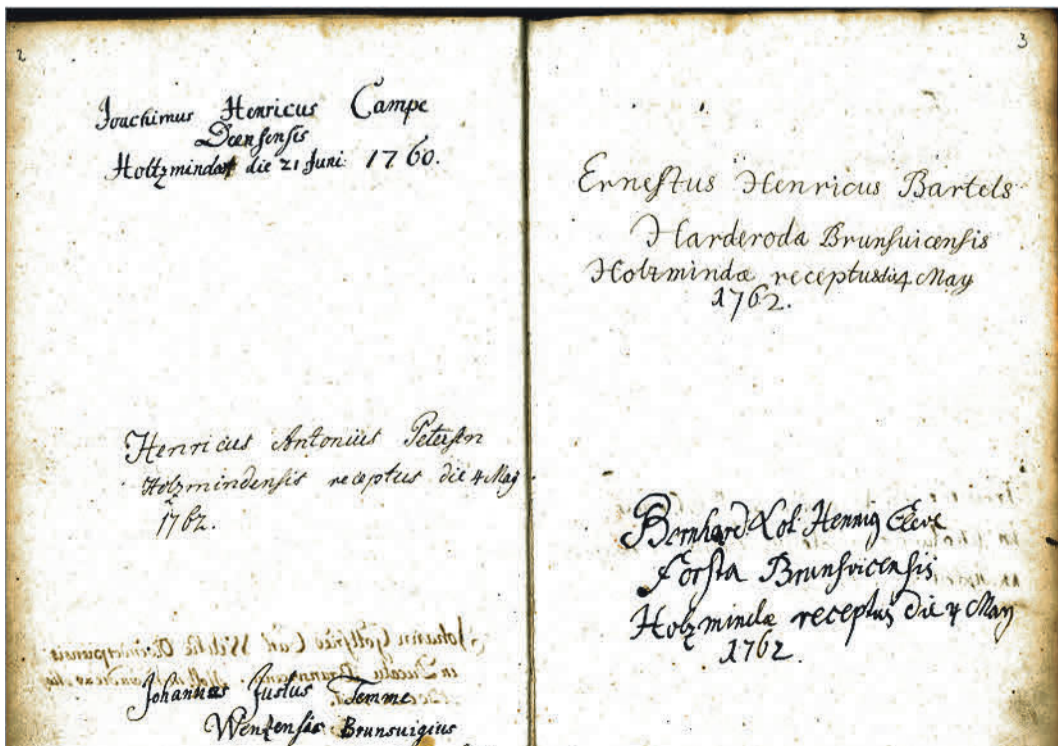 2
Joachimus Henricus Campe
Deensensis
Holtzmindae die 21 Juni 1760.
Henricus Antonius Petersen
Holzmindensis receptus die 4 May
1762.
Johannes Justus Temme
Wenzensis Brunsuigius
3
Ernestus Henricus Bartels
Harderoda Brunsuicensis
Holzmindæ receptus die 4 May
1762.
Bernhard Hennig Cleve
Forsta Brunsvicensis
Holzmindæ receptus die 4 May
1762.